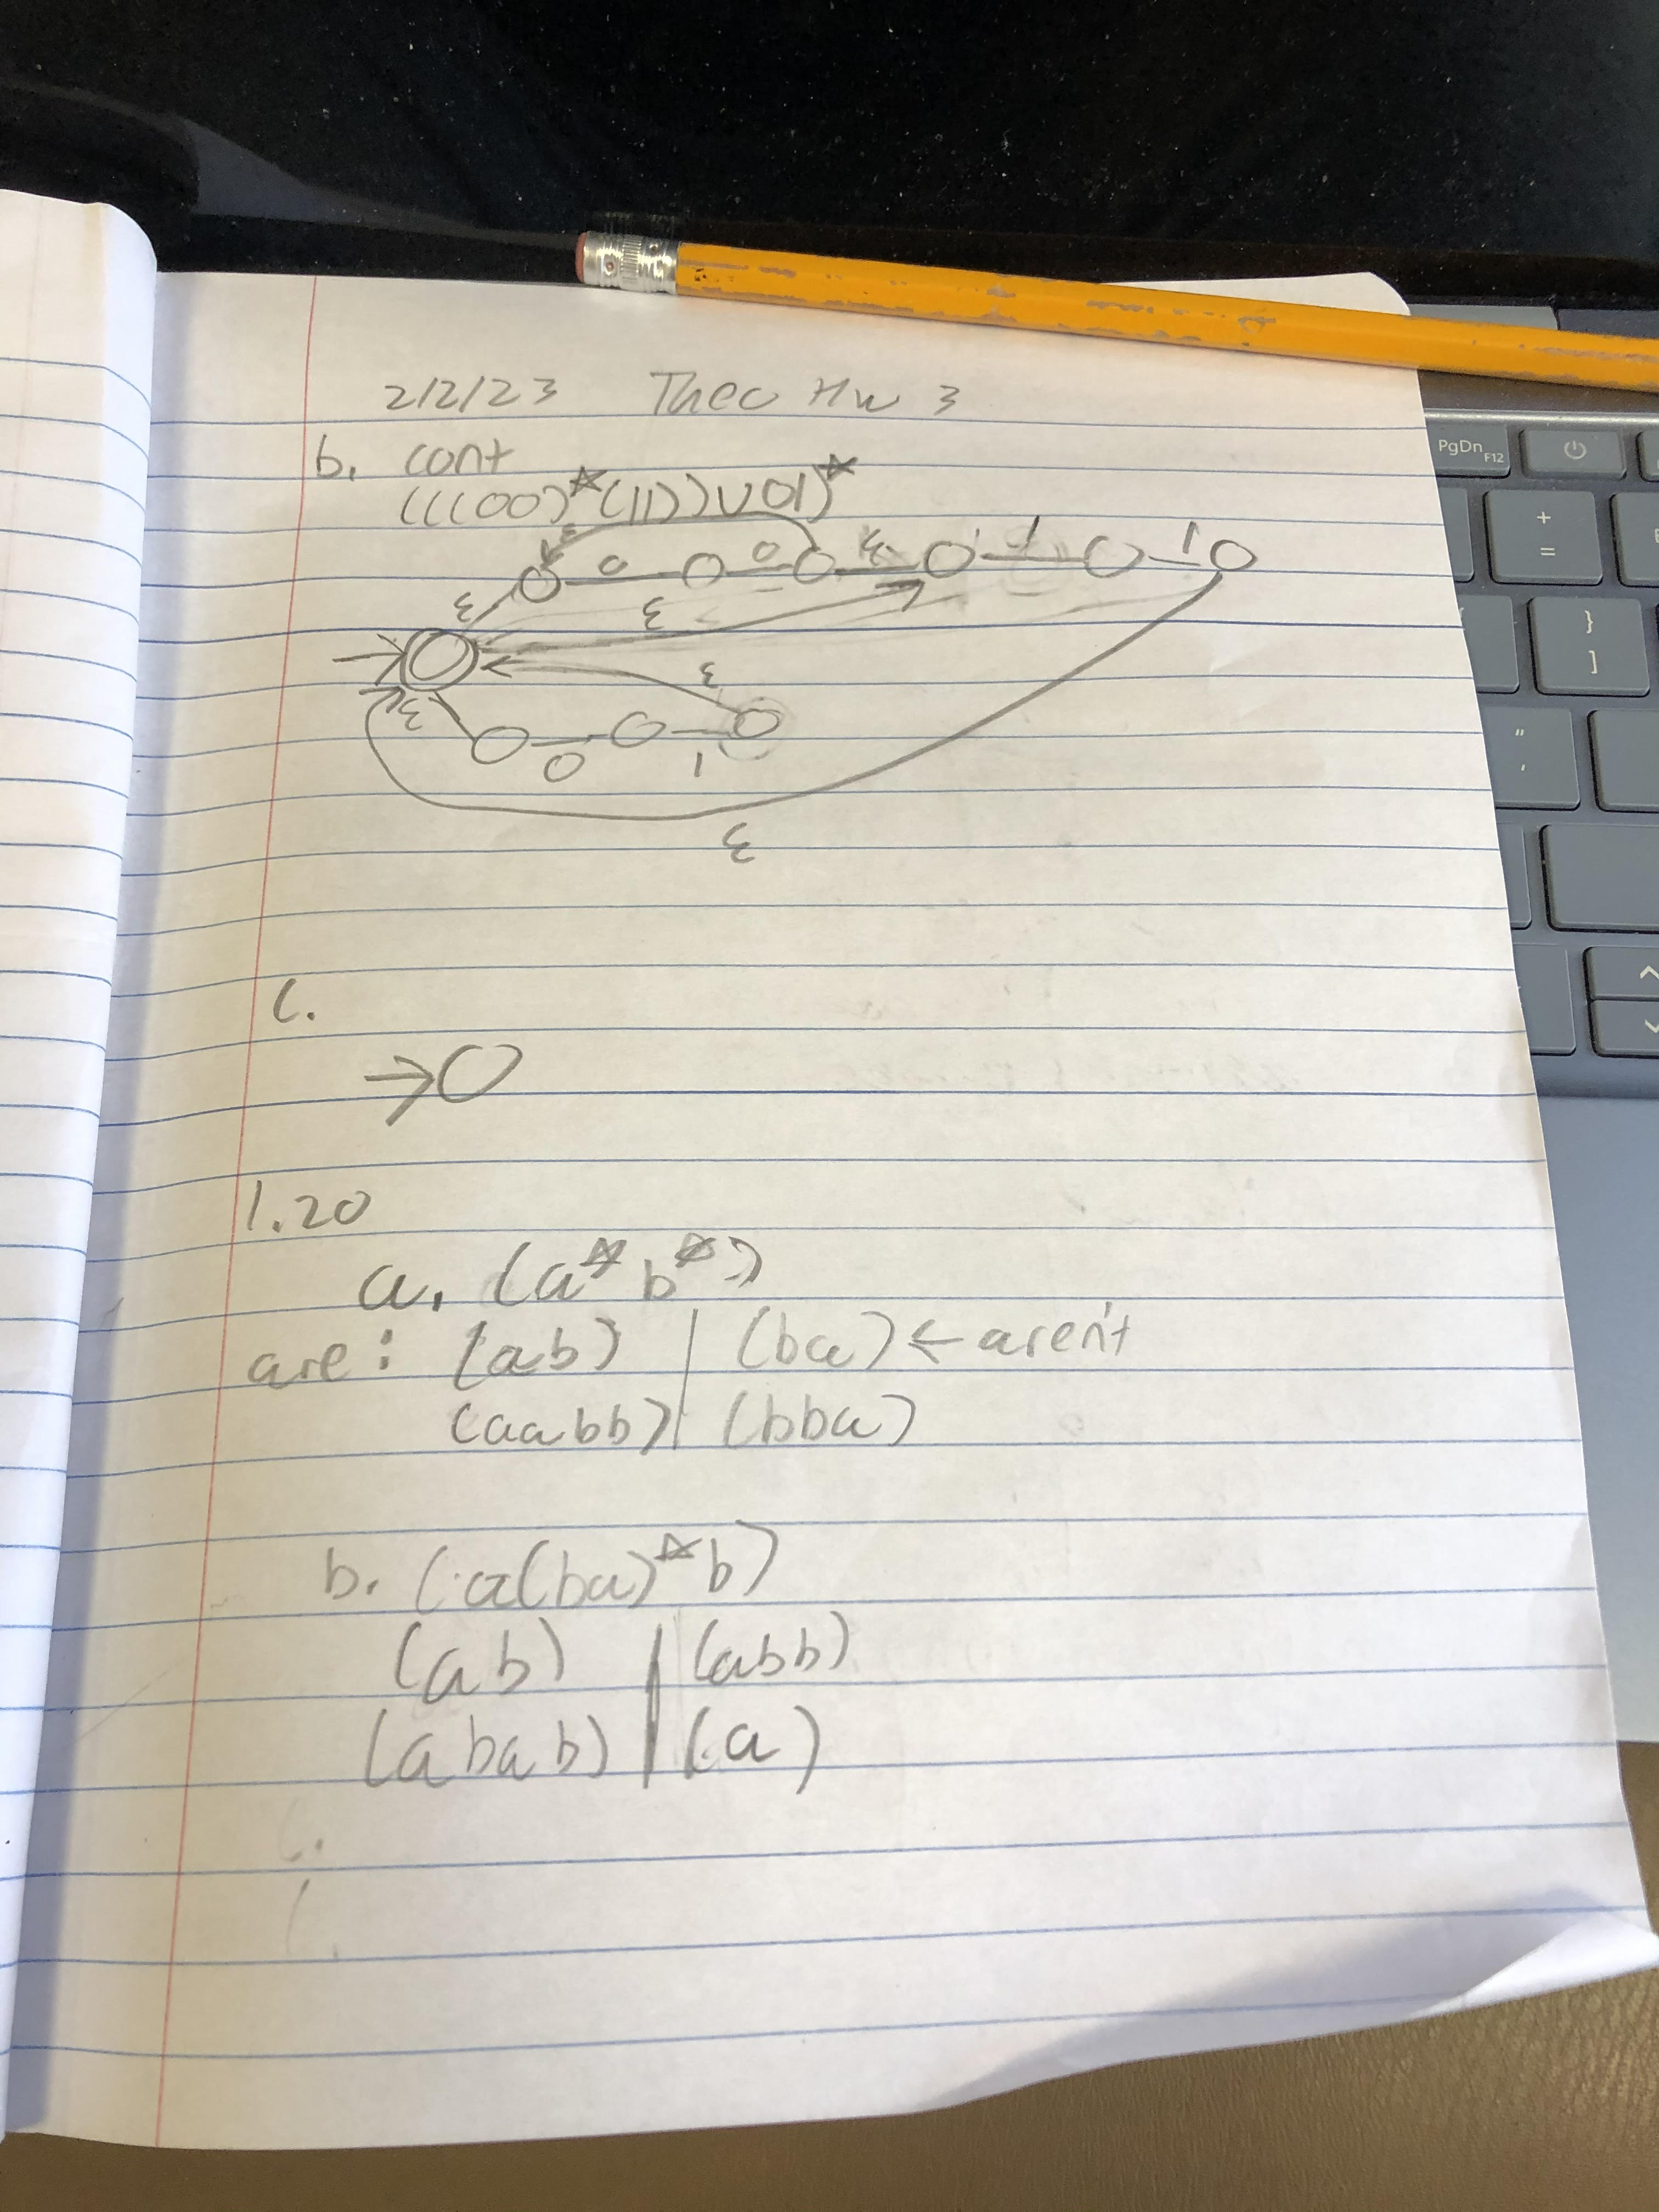 2/2/23 Theo Hw 3
b. cont
(((00)*(11))U01)*
ε
0 0 ε 1 1
ε ε
ε
ε
0 1
ε
c.
1.20
a. (a*b*)
are: (ab) | (ba) ← aren't
(aabb) | (bba)
b. (a(ba)*b)
(ab) | (abb)
(abab) | (a)
PgDn F12
+
=
}
]
"
,